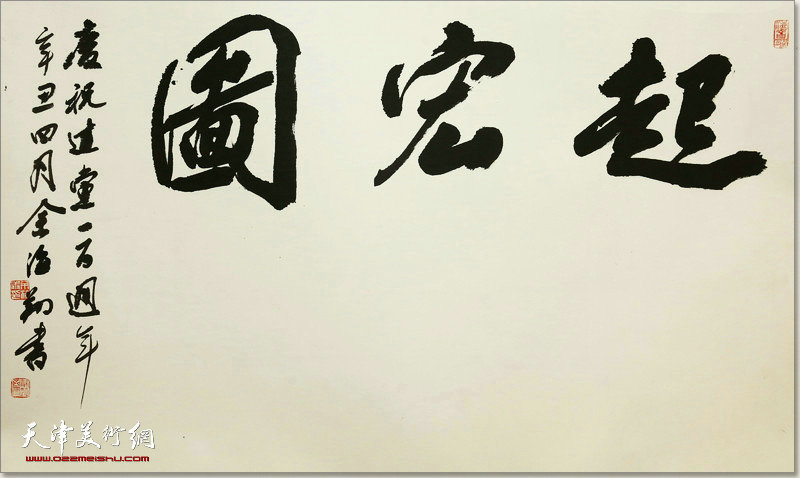 起宏圖
慶祝建黨一百週年
辛丑四月余海翔書
天津美術網
www.022meishu.com